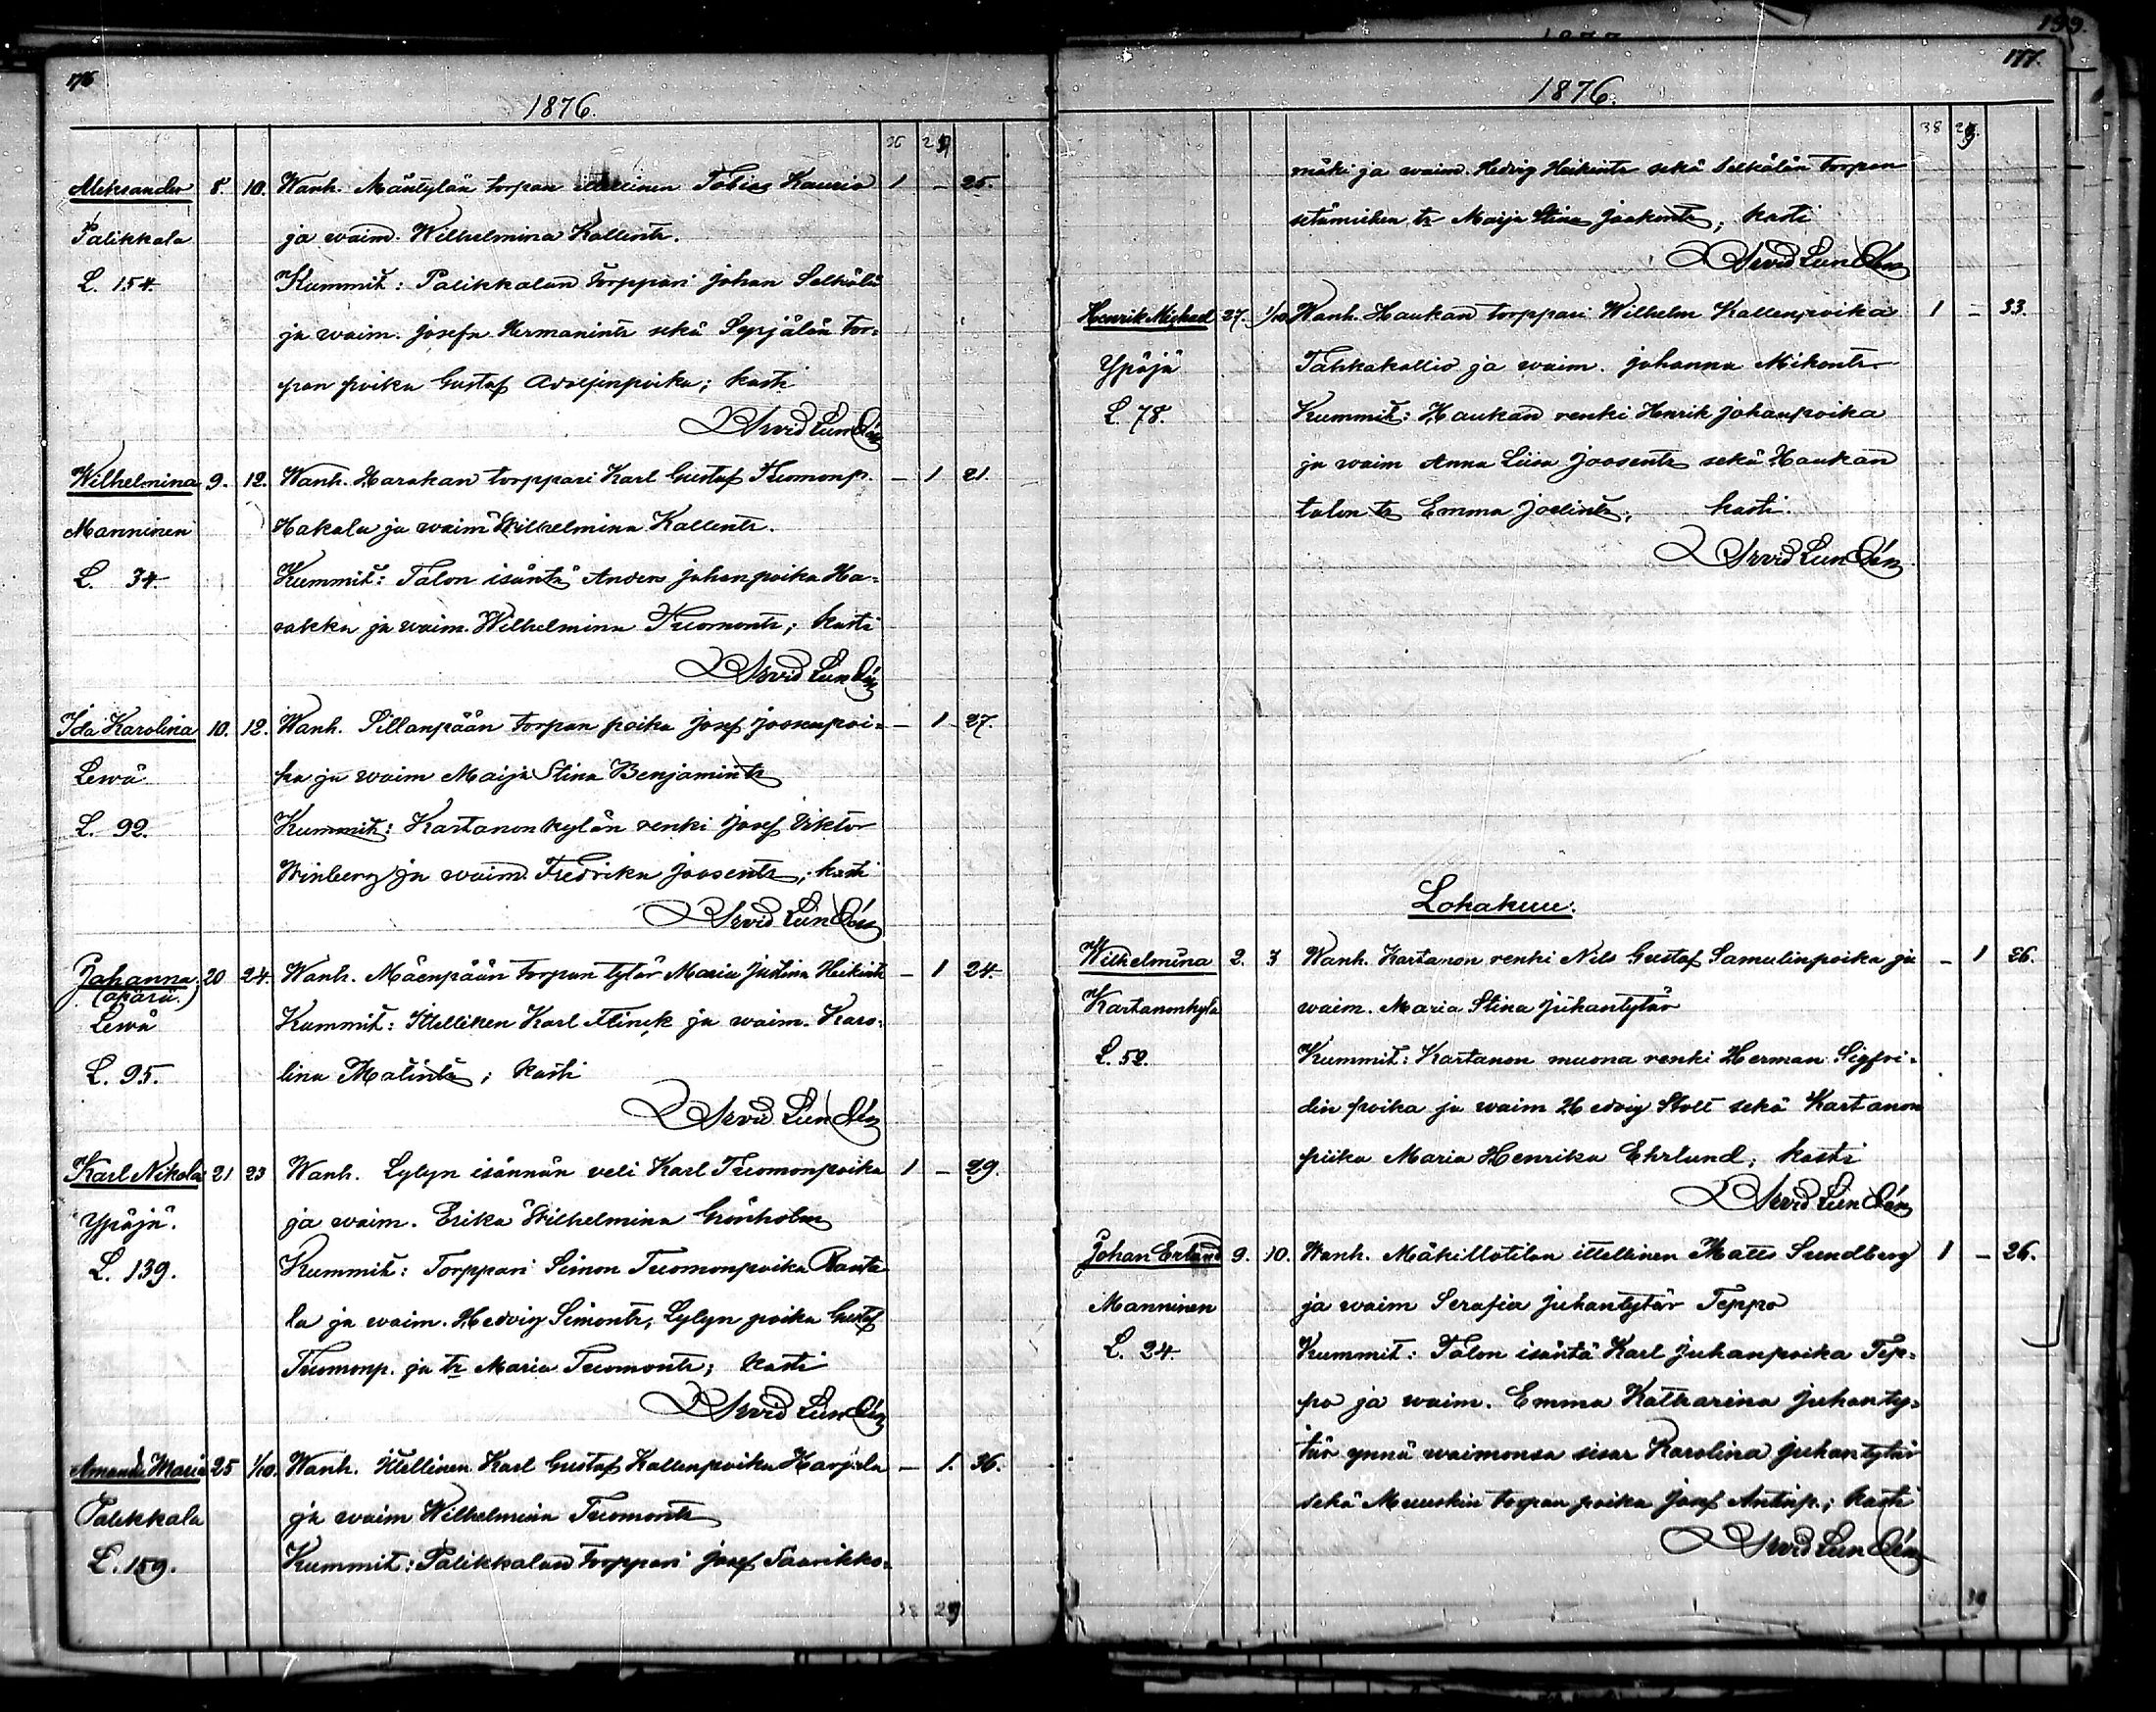 176
1876.
Aleksander 8. 10. Wanh. Mäntylän torpan itellinen Tobias Kauria 1 – 25.
Palikkala ja waim. Wilhelmina Kallentr.
L. 154. Kummit: Palikkalan torppari Johan Selkälä
ja waim. Josefa Hermanintr sekä Syrjälän tor-
pan poika Gustaf Adolfinpoika; kasti
Arvid Lundén
Wilhelmina 9. 12. Wanh. Harakan torppari Karl Gustaf Tuomonp. – 1 21.
Manninen Hakala ja waim Wilhelmina Kallentr.
L. 34. Kummit: Talon isäntä Anders Juhanpoika Ha-
rakka ja waim. Wilhelmina Tuomontr; kasti
Arvid Lundén
Ida Karolina 10. 12. Wanh. Sillanpään torpan poika Josef Joosenpoi- – 1 27.
Lewä ka ja waim Maija Stina Benjamintr
L. 92. Kummit: Kartanonkylän renki Josef Viktor
Winberg ja waim. Fredrika Joosentr; kasti
Arvid Lundén
Johanna 20 24. Wanh. Mäenpään torpan tytär Maria Justina Heikintr – 1 24.
(äpärä.)
Lewä Kummit: Itellinen Karl Flinck ja waim. Karo-
L. 95. lina Matintr; kasti
Arvid Lundén
Karl Nikolai 21 23 Wanh. Lylyn isännän veli Karl Tuomonpoika 1 – 29.
Ypäjä. ja waim. Erika Wilhelmina Grönholm
L. 139. Kummit: Torppari Simon Tuomonpoika Ranta-
la ja waim. Hedvig Simontr, Lylyn poika Gustaf
Tuomonp. ja tr Maria Tuomontr; kasti
Arvid Lundén
Amanda Maria 25 1/10. Wanh. Itellinen Karl Gustaf Kallenpoika Harjula – 1. 36.
Palikkala ja waim Wilhelmina Tuomontr
L. 159. Kummit: Palikkalan torppari Josef Saarikko-
38 29
199.
177.
1876.
38 29.
mäki ja waim. Hedvig Heikintr sekä Selkälän torpan
setämiehen tr Maija Stina Jaakontr; kasti
Arvid Lundén
Henrik Michael 27. 1/10 Wanh. Haukan torppari Wilhelm Kallenpoika 1 – 33.
Ypäjä Tahkakallio ja waim. Johanna Mikontr.
L. 78. Kummit: Haukan renki Henrik Johanpoika
ja waim Anna Liisa Joosentr sekä Haukan
talon tr Emma Joelintr; kasti.
Arvid Lundén
Lokakuu.
Wilhelmina 2. 3 Wanh. Kartanon renki Nils Gustaf Samulinpoika ja – 1 26.
Kartanonkylä waim. Maria Stina Juhantytär
L. 52. Kummit: Kartanon muona renki Herman Sigfri-
din poika ja waim Hedvig Stolt sekä Kartanon
piika Maria Henrika Ehrlund; kasti
Arvid Lundén
Johan Erland 9. 10. Wanh. Mäkillotilan itellinen Matts Sundberg 1 – 26.
Manninen ja waim Serafia Juhantytär Teppo
L. 24. Kummit: Talon isäntä Karl Juhanpoika Tep-
po ja waim. Emma Katharina Juhanty-
tär ynnä waimonsa sisar Karolina Juhantytär
sekä Muuskin torpan poika Josef Antinp.; kasti
Arvid Lundén